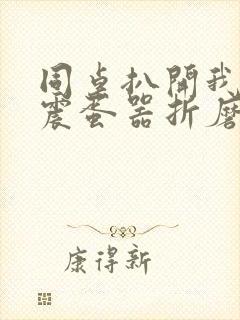 同桌扒開我
震蛋器折磨
康得新